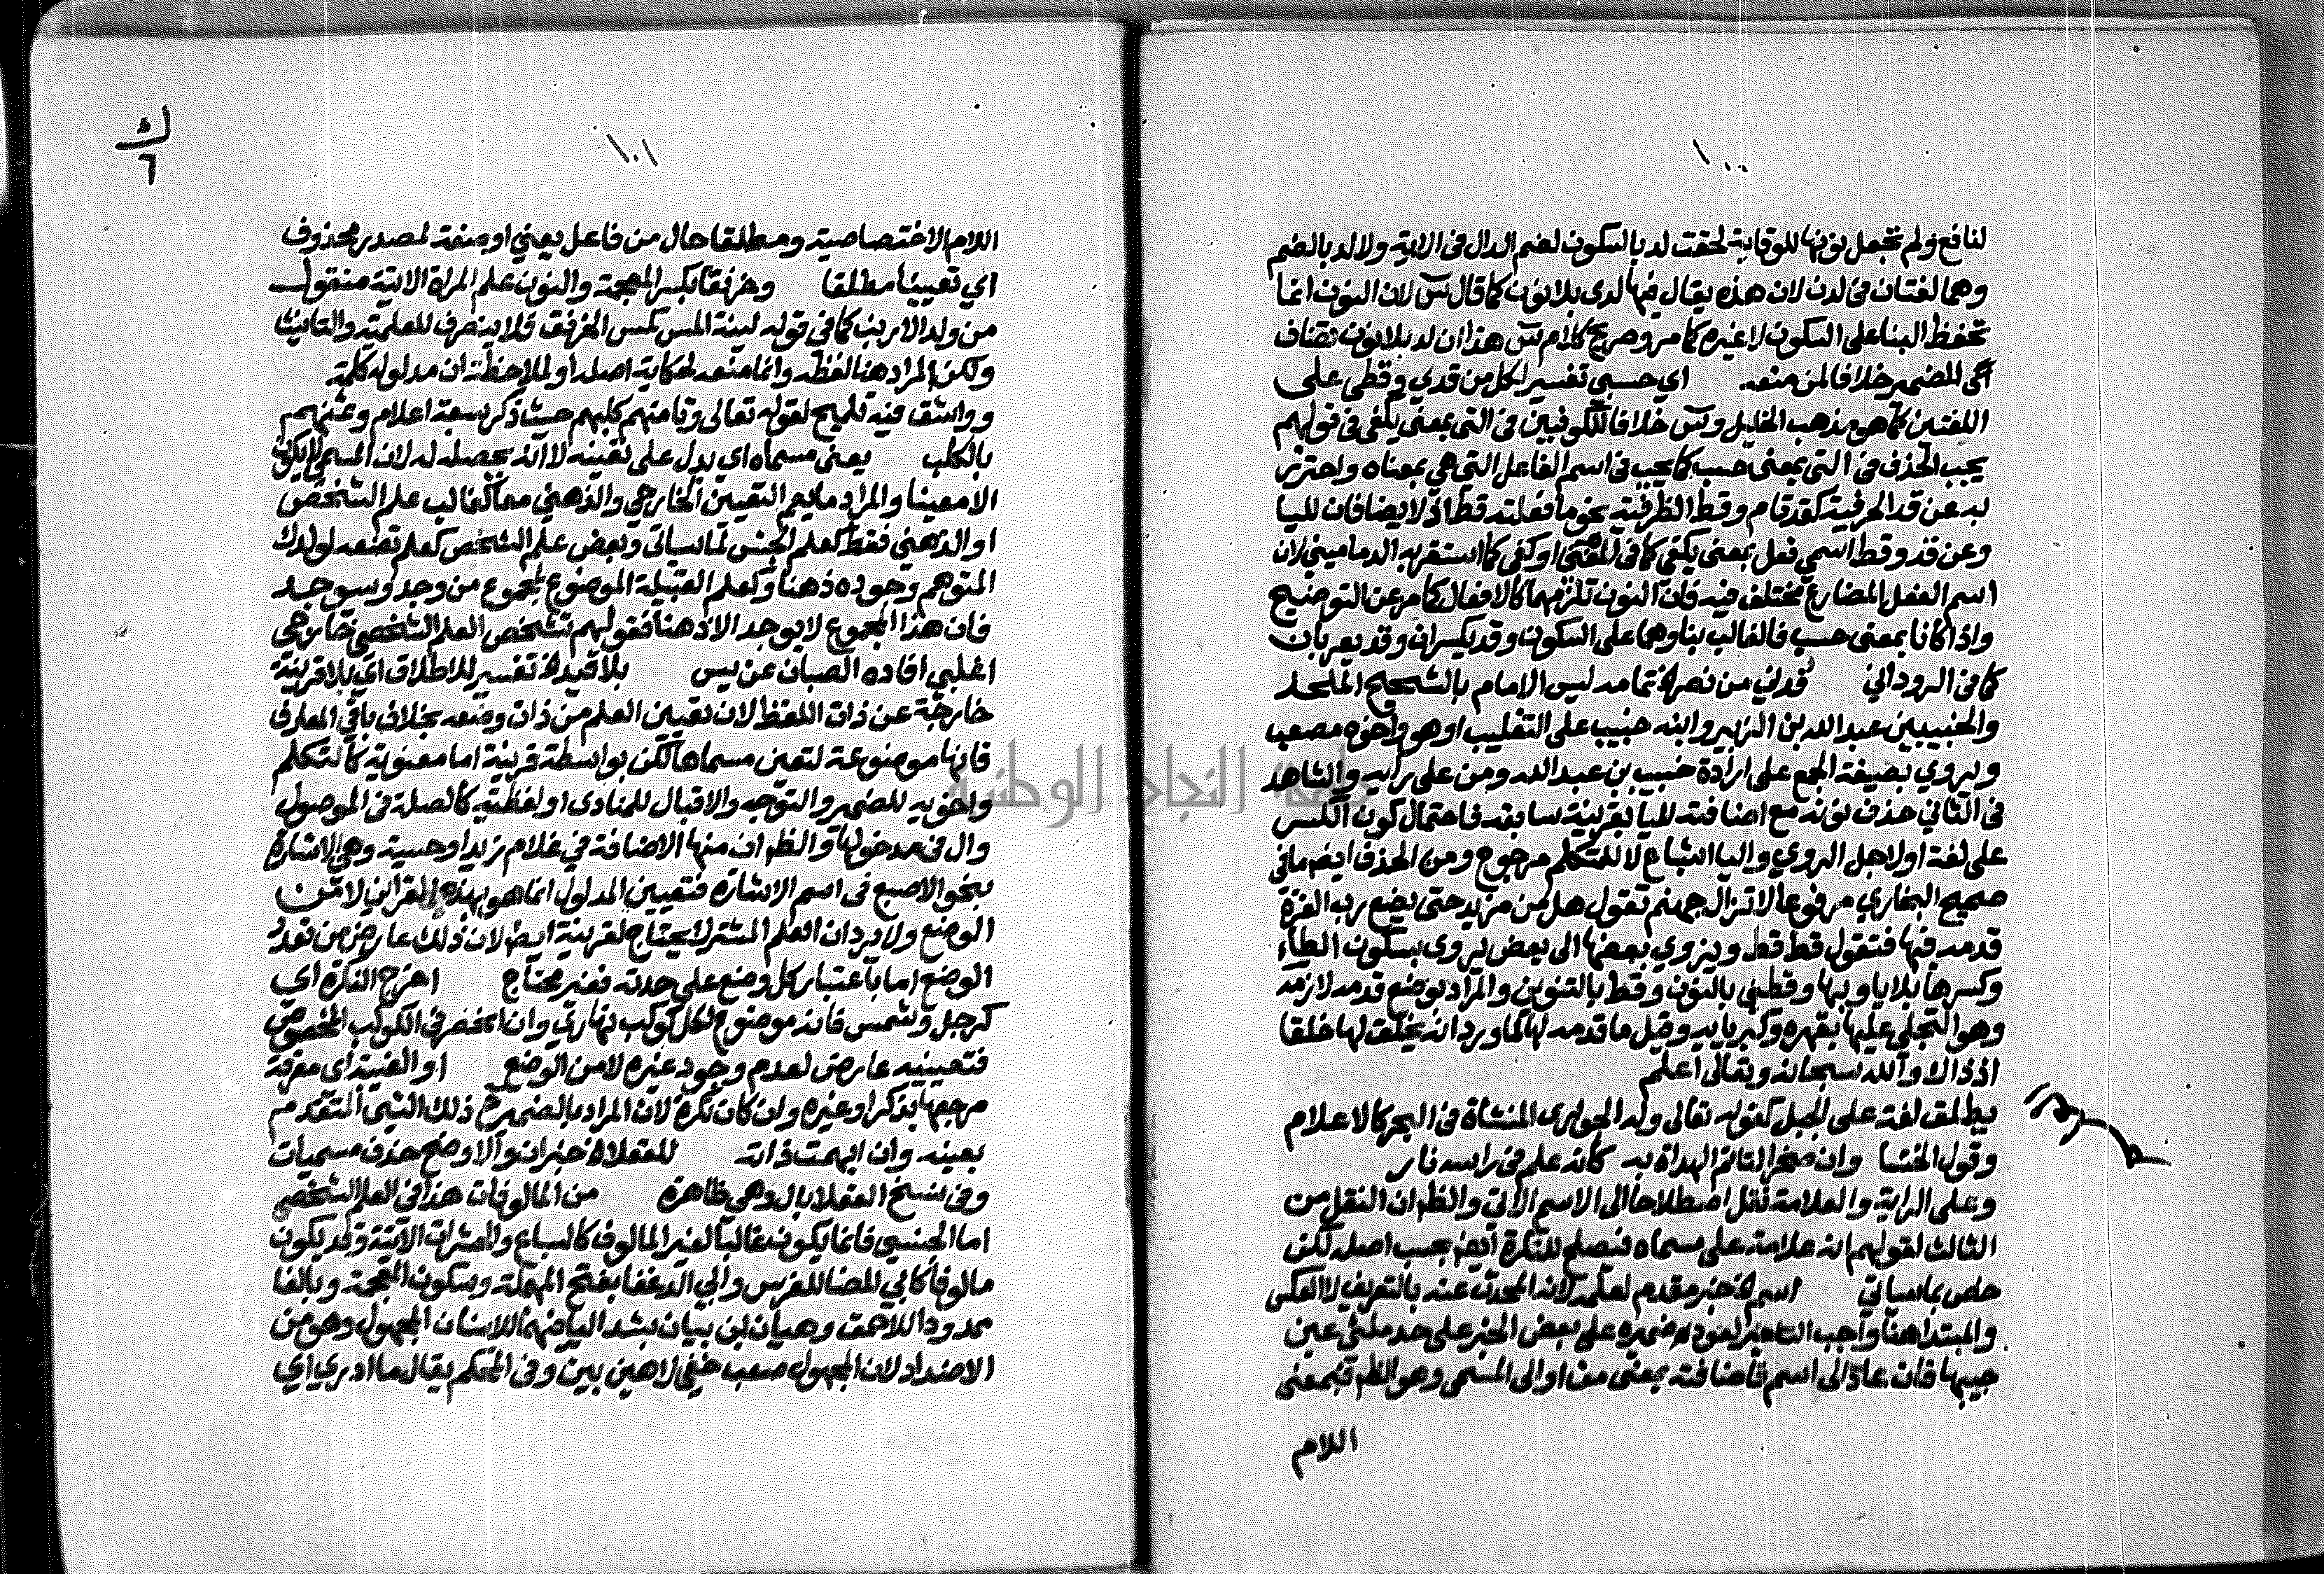 ١٠٠
لنافع ولم تجعل نونها للوقاية لحقت لد بالسكون لضم الدال فى الاية ولا لد بالضم
وهما لغتان فى لدن لان هذه يقال فيها لدى بلا نون كما قال س لان النون انما
تحفظ البنا على السكون لا غيره كما مر وصريح كلام س هذا ان لد بلا نون تضاف
الى الضمير خلافا لمن منعه اي حسبي تفسير لكل من قدي وقطى على
اللغتين كما هو مذهب الخليل وس خلافا للكوفيين فى التى بمعنى يكفى فى قولهم
يجب الحذف فى التى بمعنى حسب كما يجب فى اسم الفاعل التي هي بمعناه واحترز
به عن قد الحرفية كقد قام وقط الظرفية نحو ما فعلته قط اذ لا يضافان لليا
وعن قد وقط اسمي فعل بمعنى يكفى كما فى المغنى او كفى كما استقر به الدماميني لان
اسم الفعل المضارع مختلف فيه فان النون تلزمهما كالافعال كما مر عن التوضيح
واذا كانا بمعنى حسب فالغالب بناوهما على السكون وقد يكسران وقد يعربان
كما فى الرودانى قدني من نصر الخ تمامه ليس الامام بالشحيح الملحد
والخبيبين عبد الله بن الزبير وابنه خبيب على التغليب او هو واخوه مصعب
ويروي بصيغة الجمع على ارادة خبيب بن عبد الله ومن على رأيه والشاهد
فى الثاني حذف نونه مع اضافته لليا بقرينة سابقه فاحتمال كون الكسر
على لغة او لاجل الروي واليا اشباع لا للمتكلم مرجوح ومن الحذف ايضا مافى
صحيح البخاري مرفوعا لا تزال جهنم تقول هل من مزيد حتى يضع رب العزة
قدمه فيها فتقول قط قط ويزوي بعضها الى بعض يروى بسكون الطاء
وكسرها بلا يا وبها وقطني بالنون وقط بالتنوين والمراد بوضع قدمه لازمه
وهو التجلى عليها بقهره وكبريايه وقيل ما قدمه لها كما ورد انه يخلق لها خلقا
اذ ذاك والله سبحانه وتعالى اعلم
العلم
يطلق لغة على الجبل كقوله تعالى وله الجوارى المنشاة فى البحر كالاعلام
وقول الخنسا وان صخرا لتاتم الهداة به كانه علم فى راسه نار
وعلى الراية والعلامة نقل اصطلاحا الى الاسم الاتى والظم ان النقل من
الثالث لقولهم انه علامة على مسماه فتصلح للنكرة ايضا بحسب اصله لكن
خص بما سياتي اسم الخ خبر مقدم لعلمه لانه المحدث عنه بالتعريف لا العكس
والمبتدا هنا واجب التاخير لعود ضميره على بعض الخبر على حد ملئ عين
حبيبها فان عاد الى اسم فاضافته بمعنى من او الى المسمى وهو الظم فبمعنى
اللام
ك
٦
١٠١
اللام الاختصاصية ومطلقا حال من فاعل يعني او صفة لمصدر محذوف
اي تعيينا مطلقا وخرنقا بكسر المعجمة والنون علم المراة الاتية منقول
من ولد الارنب كما فى قوله لينة المس كمس الخرنق فلا ينصرف للعلمية والتانيث
ولكن المراد هنا لفظه وانما منعه لحكاية اصله او لملاحظة ان مدلوله كلمة
وواشق فيه تلميح لقوله تعالى وثامنهم كلبهم حيث ذكر سبعة اعلام وثمنهم
بالكلب يعنى مسماه اى يدل على تعينه لا انه يحصله له لان المسمى لا يكون
الا معينا والمراد ما يعم التعيين الخارجي والذهني معا كغالب علم الشخص
او الذهني فقط كعلم الجنس لما سياتى وبعض علم الشخص كعلم تضعه لولدك
المتوهم وجوده ذهنا وكعلم القبيلة الموضوع لمجموع من وجد وسيوجد
فان هذا المجموع لا يوجد الا ذهنا فقولهم تشخص العلم الشخصي خارجي
اغلبي افاده الصبان عن يس بلا قيد الخ تفسير للاطلاق اي بلا قرينة
خارجة عن ذات اللفظ لان تعيين العلم من ذات وضعه بخلاف باقى المعارف
فانها موضوعة لتعين مسماها لكن بواسطة قرينة اما معنوية كالتكلم
واخويه للضمير والتوجه والاقبال للمنادى او لفظية كالصلة فى الموصول
وال فى مدخولها والظم ان منها الاضافة في غلام زيد او حسية وهي الاشارة
بنحو الاصبع فى اسم الاشارة فتعيين المدلول انما هو بهذه القراين لا من
الوضع ولا يرد ان العلم المشترك يحتاج لقرينة ايضا لان ذلك عارض من تعدد
الوضع اما باعتبار كل وضع على حدته فغير محتاج اخرج النكرة اي
كرجل وشمس فانه موضوع لكل كوكب نهاري وان انحصر فى الكوكب المخصوص
فتعيينه عارض لعدم وجود غيره لا من الوضع او الغيبة اى معرفة
مرجعها بذكر او غيره وان كان نكرة لان المراد بالضمير ذلك الشى المتقدم
بعينه وان ابهمت ذاته للعقلاء الخ خبر ان والاوضح حذف مسميات
وفى نسخ العقلا بال وهى ظاهرة من المالوفات هذا فى العلم الشخصى
اما الجنسي فانما يكون غالبا لغير المالوف كالسباع والحشرات الاتية وقد يكون
مالوفا كابي المضا للفرس وابي الدغفا بفتح المهملة وسكون المعجمة وبالفا
ممدودا للاحمق وهيان بن بيان بشد اليا فيهما للانسان المجهول وهو من
الاضداد لان المجهول صعب خفى لا هين بين وفى المحكم يقال ما ادري اي